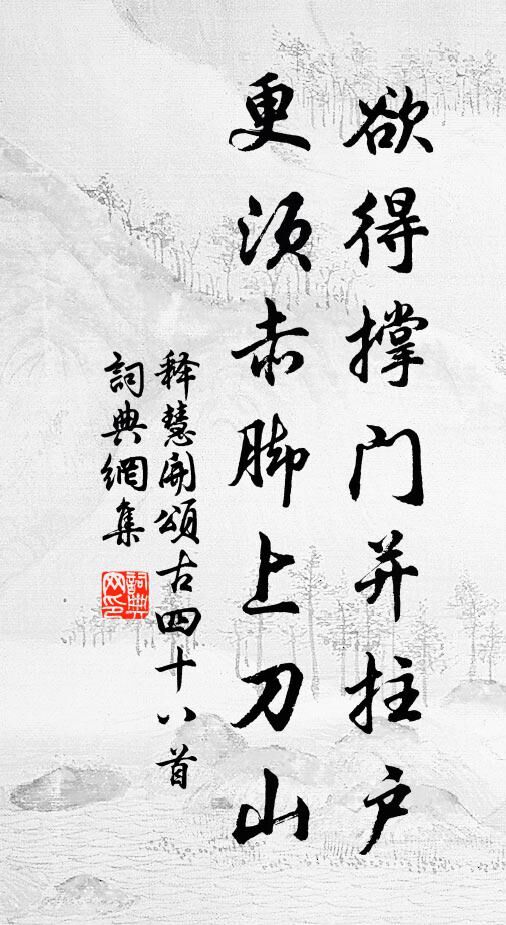 欲得撑门并拄户
更须赤脚上刀山
释慧開頌古四十八首
詞典網集
詞典网印